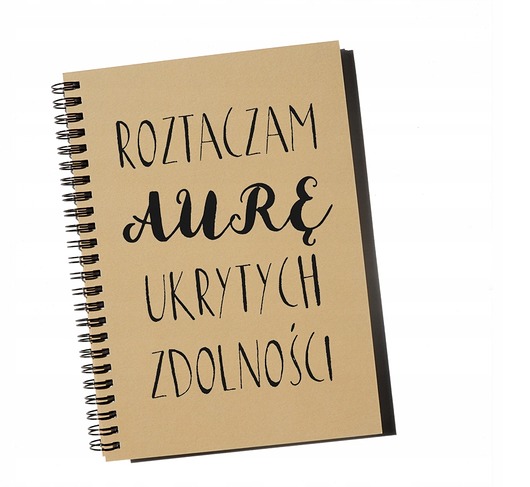 ROZTACZAM
AURĘ
UKRYTYCH
ZDOLNOŚCI